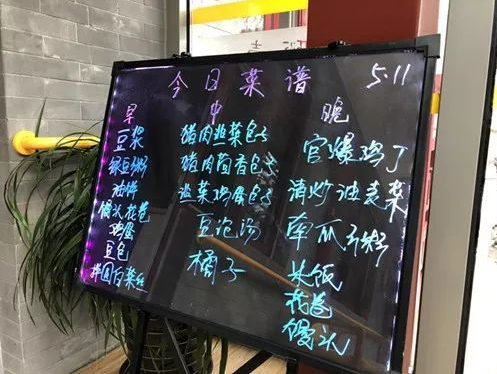 今日菜谱 5.11
早
豆浆
绿豆粥
油饼
馒头花卷
鸡蛋
豆包
拌圆白菜丝
中
猪肉韭菜包子
猪肉茴香包子
韭菜鸡蛋包子
豆泡汤
橘子
晚
官爆鸡丁
清炒油麦菜
南瓜粥
米饭
花卷
馒头